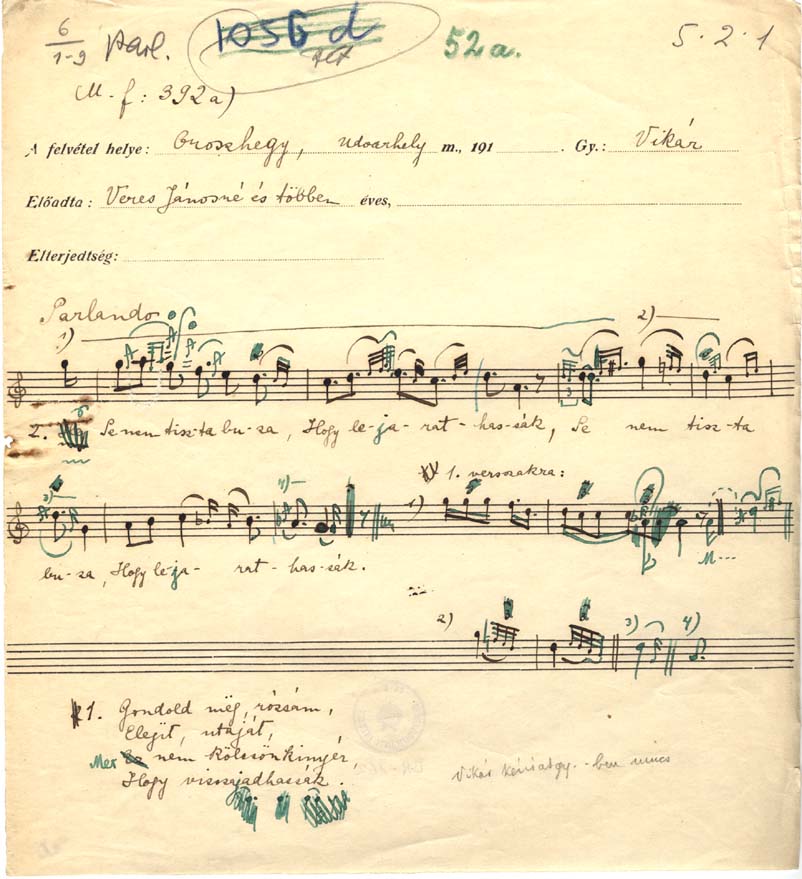 6/1-9 Parl. 1056 d 52a. 5.2.1
(M-f: 392a)
A felvétel helye: Oroszhegy, Udvarhely m., 191 . Gy.: Vikár
Előadta: Veres Jánosné és többen éves,
Elterjedtség:
Parlando
1) 2)
2. Se nem tisz-ta bu-za, Hogy le-ja-rat-has-sák, Se nem tisz-ta
1. versszakra:
3) 4) 1)
bu-za, Hogy le-ja-rat-has-sák. M...
2) 3) 4)
1. Gondold még, rózsám,
Elejit, utaját,
Mer nem kölcsönkinyér,
Hogy visszajadhassák.
Vikár -ben nincs